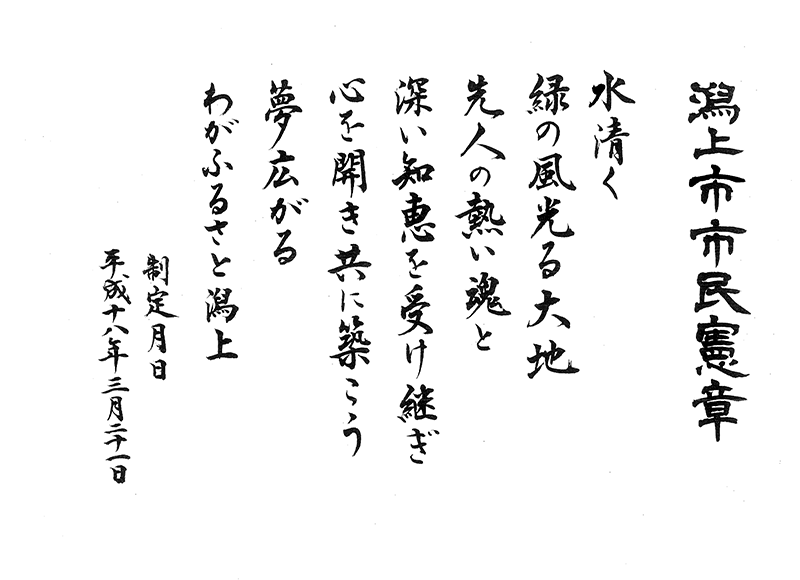 潟上市市民憲章
水清く
緑の風光る大地
先人の熱い魂と
深い知恵を受け継ぎ
心を開き共に築こう
夢広がる
わがふるさと潟上
制定月日
平成十八年三月二十一日